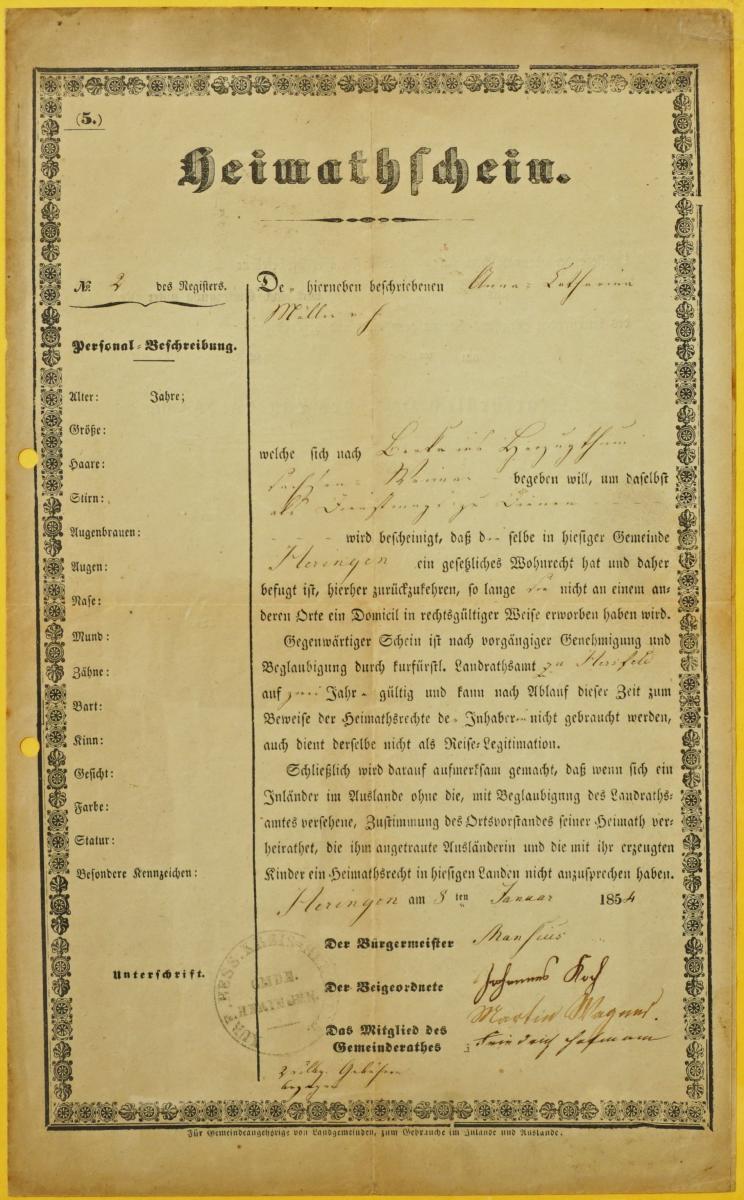 (5.)
Heimathschein.
№ 2 des Registers.
Personal-Beschreibung.
Alter: Jahre;
Größe:
Haare:
Stirn:
Augenbrauen:
Augen:
Nase:
Mund:
Zähne:
Bart:
Kinn:
Gesicht:
Farbe:
Statur:
Besondere Kennzeichen:
Unterschrift.
De hierneben beschriebenen Anna Catharina
Müller
welche sich nach Berka ins Herzogthum
Sachsen-Weimar begeben will, um daselbst
als Dienstmagd zu dienen
wird bescheinigt, daß d selbe in hiesiger Gemeinde
Heringen ein gesetzliches Wohnrecht hat und daher
befugt ist, hierher zurückzukehren, so lange sie nicht an einem an-
deren Orte ein Domicil in rechtsgültiger Weise erworben haben wird.
Gegenwärtiger Schein ist nach vorgängiger Genehmigung und
Beglaubigung durch kurfürstl. Landrathsamt zu Hersfeld
auf zwei Jahr gültig und kann nach Ablauf dieser Zeit zum
Beweise der Heimathsrechte de Inhaber nicht gebraucht werden,
auch dient derselbe nicht als Reise-Legitimation.
Schließlich wird darauf aufmerksam gemacht, daß wenn sich ein
Inländer im Auslande ohne die, mit Beglaubigung des Landraths-
amtes versehene, Zustimmung des Ortsvorstandes seiner Heimath ver-
heirathet, die ihm angetraute Ausländerin und die mit ihr erzeugten
Kinder ein Heimathsrecht in hiesigen Landen nicht anzusprechen haben.
Heringen am 8 ten Januar 1854
Der Bürgermeister
Der Beigeordnete Johannes Koch
Martin Wagner.
Das Mitglied des
Gemeinderathes Friedrich Hofmann
KURF. HESS. KREIS
HERINGEN.
Gebühren
Für Gemeindeangehörige von Landgemeinden, zum Gebrauche im Inlande und Auslande.